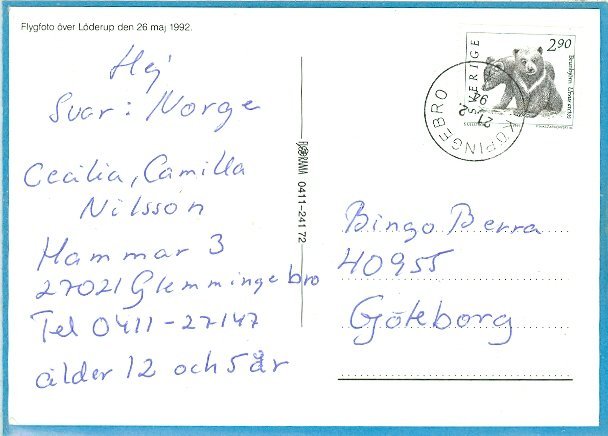 Flygfoto över Löderup den 26 maj 1992.
Hej
Svar: Norge
Cecilia, Camilla
Nilsson
Hammar 3
27021 Glemmingebro
Tel 0411-27147
ålder 12 och 5 år
0411-241 72
SVERIGE
2.90
KÖPINGEBRO
21
2
94
Bingo Berra
40955
Göteborg